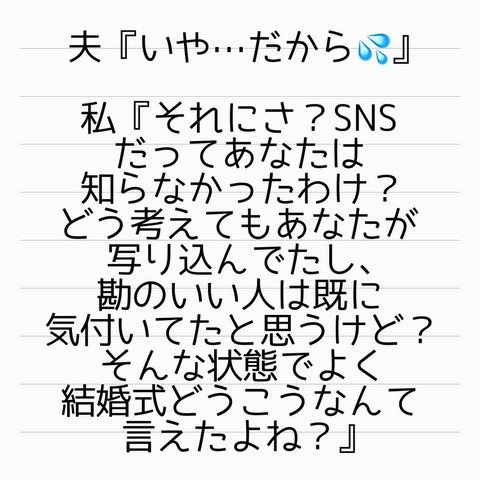 夫『いや…だから💦』
私『それにさ？SNS
だってあなたは
知らなかったわけ？
どう考えてもあなたが
写り込んでたし、
勘のいい人は既に
気付いてたと思うけど？
そんな状態でよく
結婚式どうこうなんて
言えたよね？』